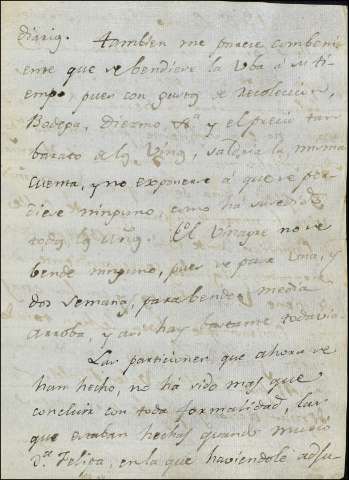 diarios. tambien me parece combeni
ente que se bendiese la Uba á su ti
empo pues con gastos de Recoleccion,
Bodega, diezmo &ª. y el precio tan
barato de los Vinos, saldria la misma
cuenta, y no exponerse á que se per
diese ninguno, como ha susedido
todos los años. El Vinagre no se
bende ninguno, pues se pasa una, y
dos semanas, para bender media
arroba, y aun hay bastante todavia
Las particiones que ahora se
han hecho, no ha sido mas que
concluir con toda formalidad, las
que estaban hechas quando murió
Dª. Felipa, en la que haviendole adju